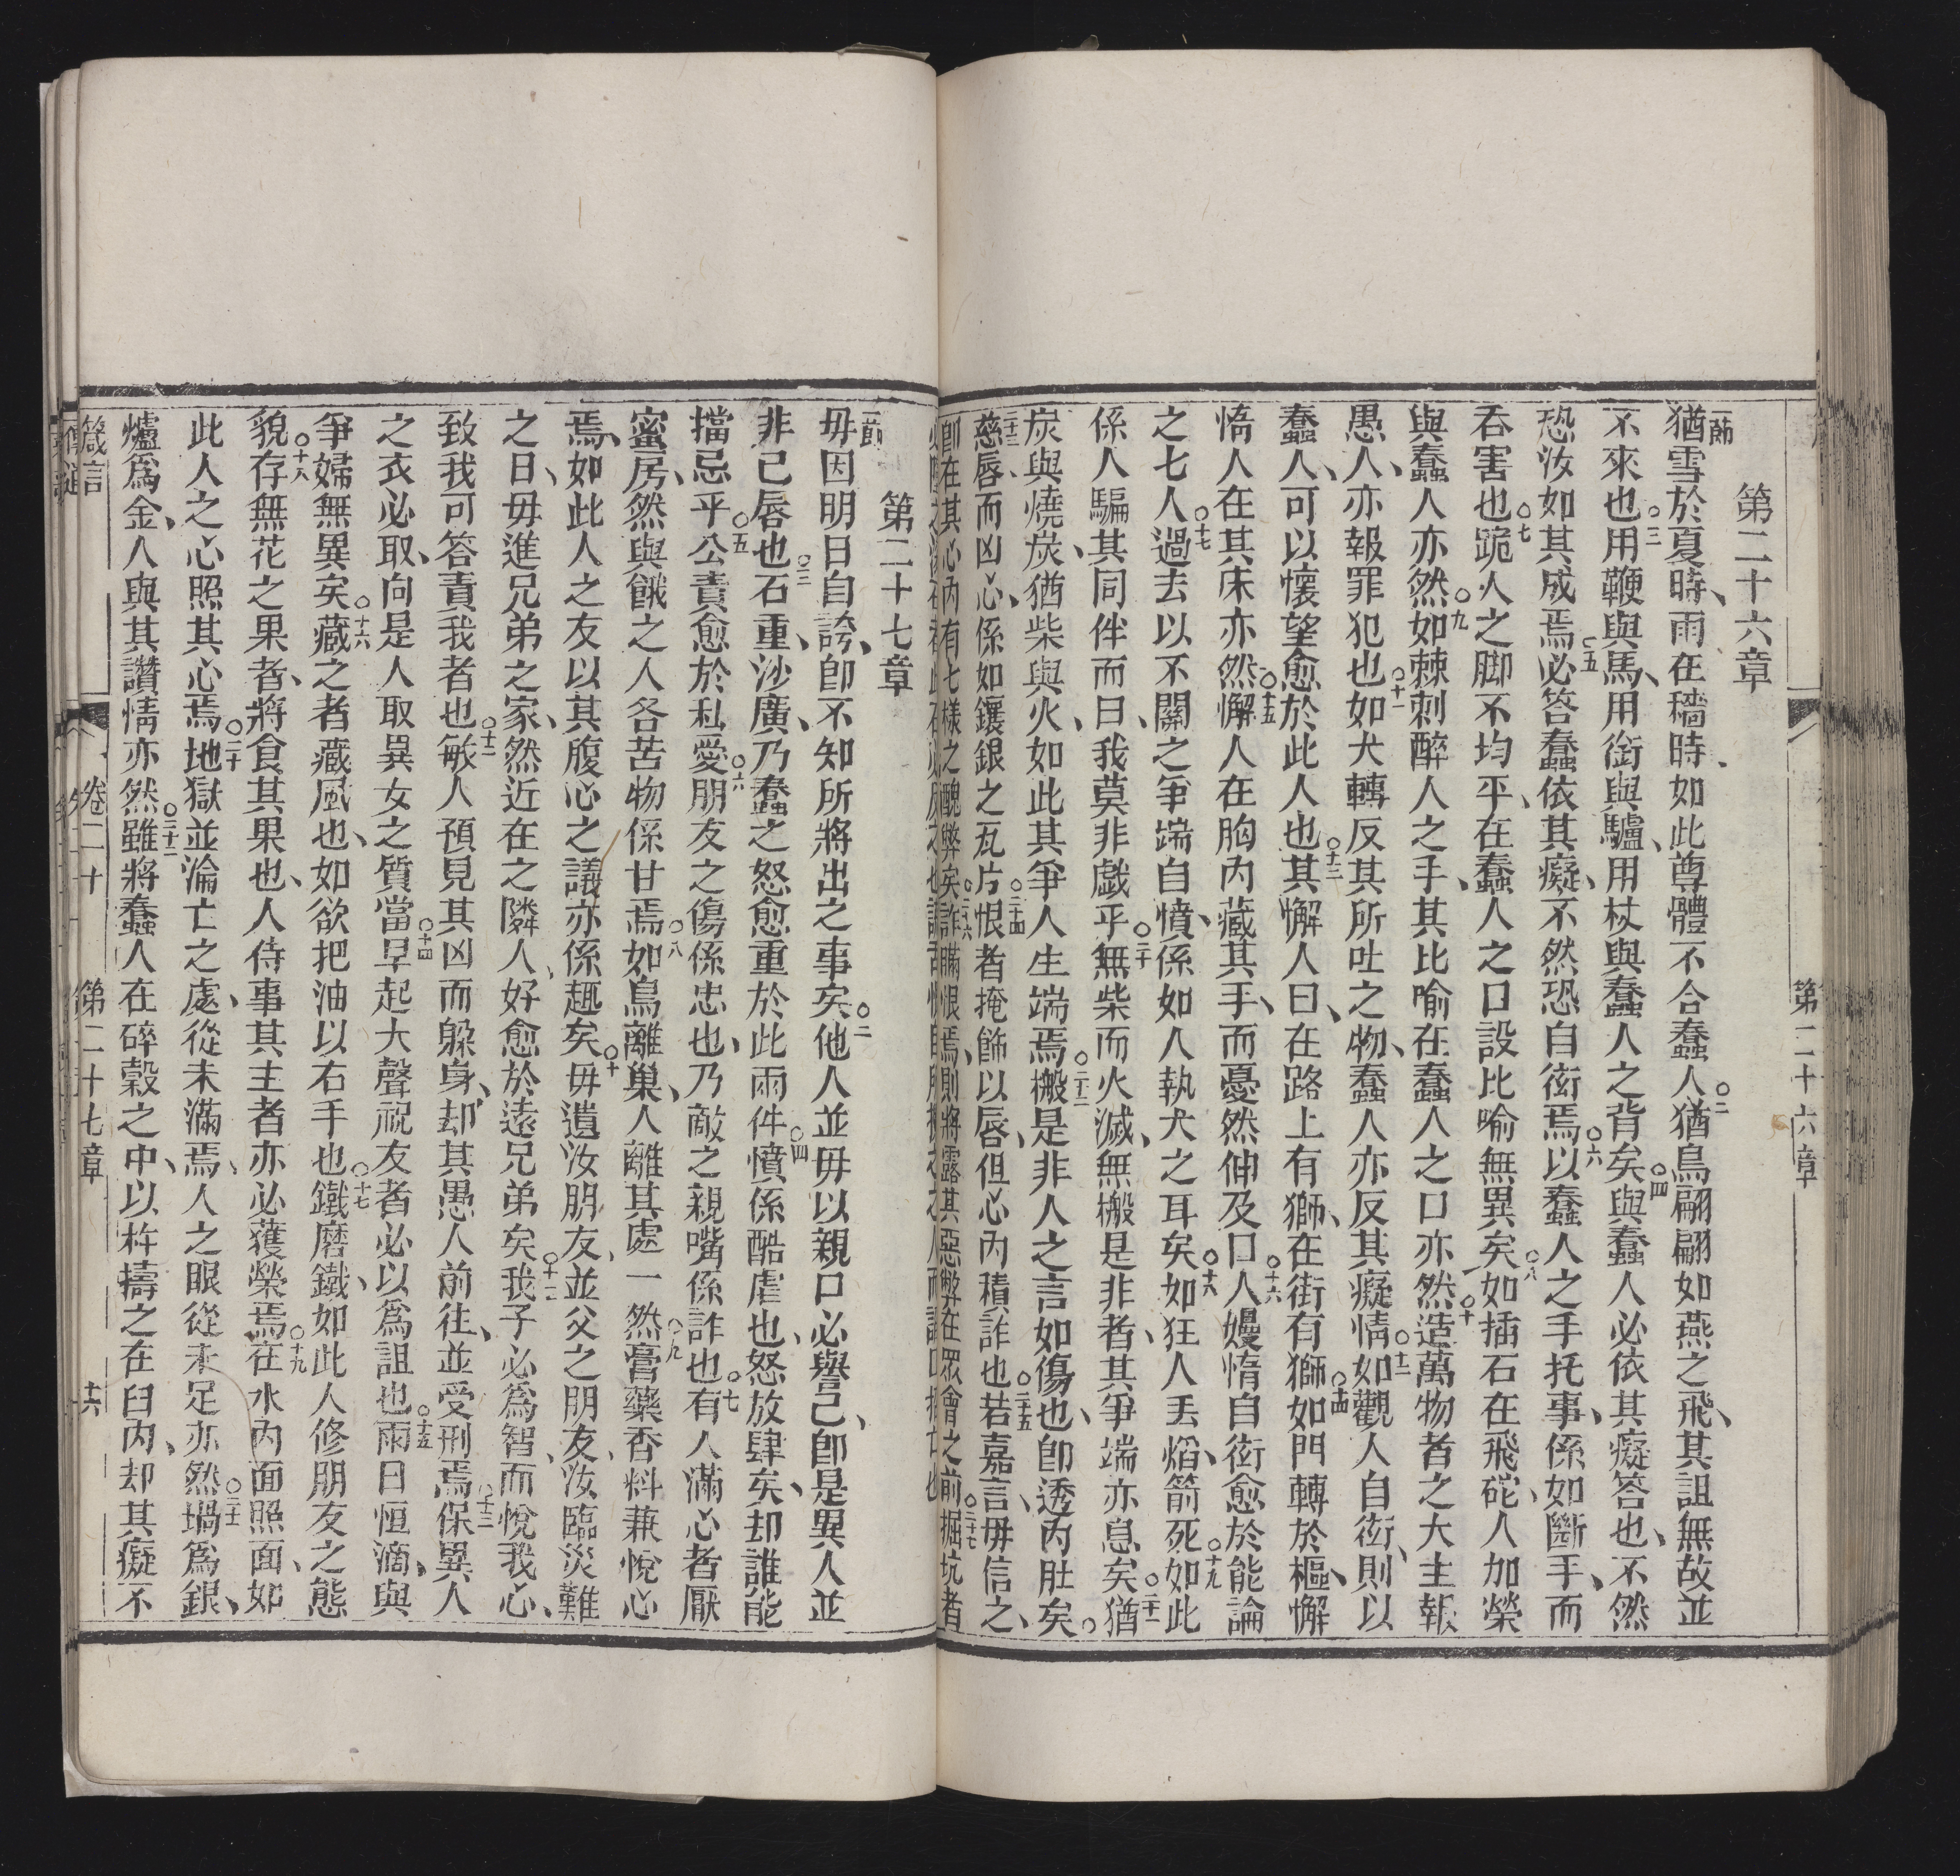 第二十六章
第二十六章
一節猶雪於夏時、雨在穡時如此尊體不合蠢人○二猶鳥翩翩如燕之飛、其詛無故並
不來也○三用鞭與馬、用銜與驢、用杖與蠢人之背矣○四與蠢人必依其癡答也、不然
恐汝如其成焉○五必答蠢依其癡、不然恐自衒焉○六以蠢人之手托事、係如斷手、而
吞害也○七跪人之脚不均平、在蠢人之口設比喻無異矣○八如插石在飛砣、人加榮
與蠢人亦然○九如棘刺醉人之手、其比喻在蠢人之口亦然○十造萬物者之大主報
愚人、亦報罪犯也○十一如犬轉反其所吐之物、蠢人亦反其癡情○十二如觀人自衒、則以
蠢人、可以懷望愈於此人也○十三其懈人曰、在路上有獅、在街有獅○十四如門轉於樞、懈
惰人在其床亦然○十五懈人在胸內藏其手、而憂然伸及口○十六人嫚惰自衒愈於能論
之七人○十七過去以不關之爭端自憤、係如人執犬之耳矣○十八如狂人丟焰、箭死○十九如此
係人騙其同伴而曰、我莫非戲乎○二十無柴而火滅、無搬是非者、其爭端亦息矣○二十一猶
炭與燒炭、猶柴與火、如此其爭人生端焉○二十二搬是非人之言如傷也、卽透內肚矣。○
二十三慈唇、而凶心、係如鑲銀之瓦片○二十四恨者掩飾以唇、但心內積詐也○二十五若嘉言、毋信之、
卽在其心內有七樣之醜弊矣○二十六詐瞞恨焉、則將露其惡弊在眾會之前○二十七掘坑者
第二十七章
一節毋因明日自誇、卽不知所將出之事矣○二他人並毋以親口必譽己、卽是異人並
非己唇也○三石重、沙廣、乃蠢之怒愈重於此兩件○四憤係酷虐也、怒放肆矣、却誰能
擋忌乎○五公責愈於私愛○六朋友之傷係忠也、乃敵之親嘴係詐也○七有人滿心者厭
蜜房、然與餓之人各苦物係甘焉○八如鳥離巢、人離其處一然○九膏藥香料兼悅心
焉、如此人之友以其腹心之議亦係趣矣○十毋遺汝朋友、並父之朋友、汝臨災難
之日、毋進兄弟之家、然近在之隣人、好愈於遠兄弟矣○十一我子必為智、而悅我心、
致我可答責我者也○十二敏人預見其凶而躲身、却其愚人前往、並受刑焉○十三保異人
之衣必取、向是人取異女之質當○十四早起大聲祝友者必以為詛也○十五雨日恒滴、與
爭婦無異矣○十六藏之者藏風也、如欲把油以右手也○十七鐵磨鐵、如此人修朋友之態
貌○十八存無花之果者、將食其果也、人侍事其主者亦必獲榮焉○十九在水內面照面、如
此人之心照其心焉○二十地獄並淪亡之處、從未滿焉、人之眼從未足亦然○二十一堝為銀、
爐為金、人與其讚情亦然○二十二雖將蠢人在碎穀之中、以杵擣之在臼內、却其癡不
箴言　卷二十　第二十七章　十六